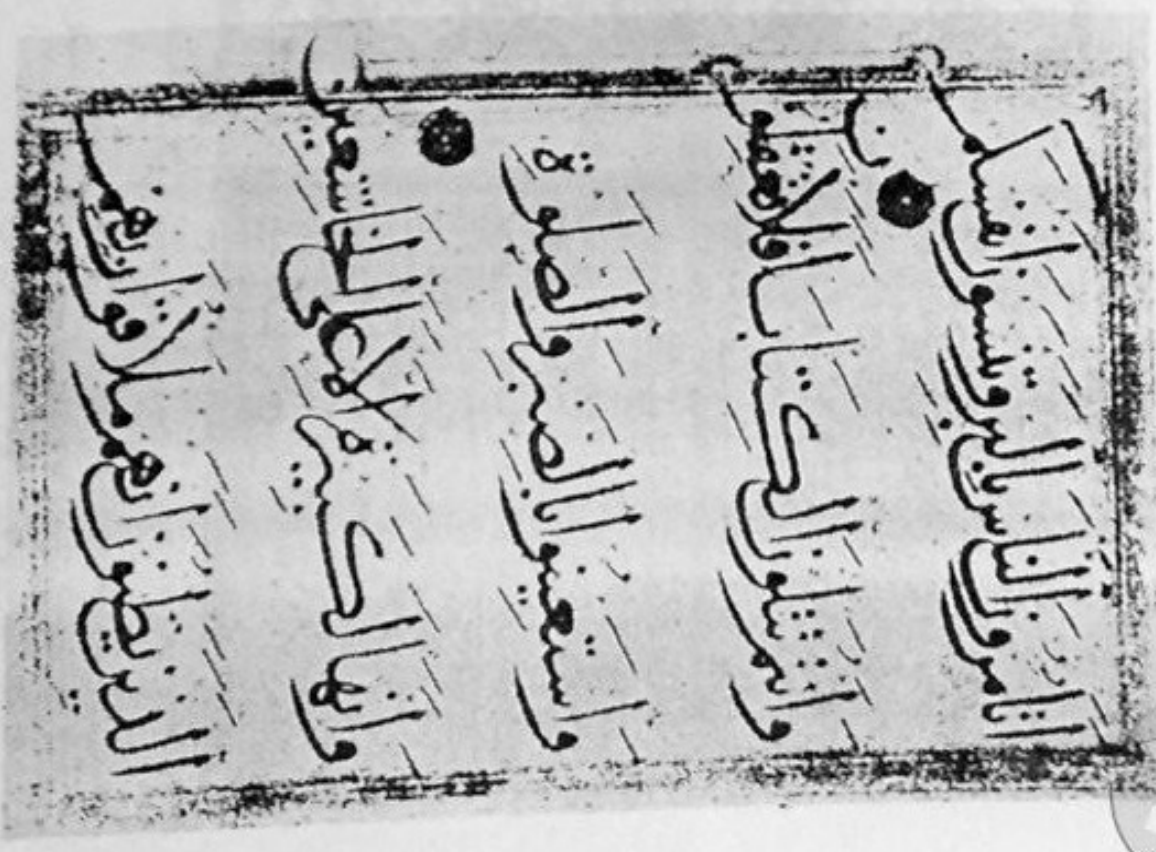 اتامرون الناس بالبر وتنسون انفسكم
وانتم تتلون الكتاب افلا تعقلون
واستعينوا بالصبر والصلوة
وانها لكبيرة الا على الخشعين
الذين يظنون انهم ملاقوا ربهم